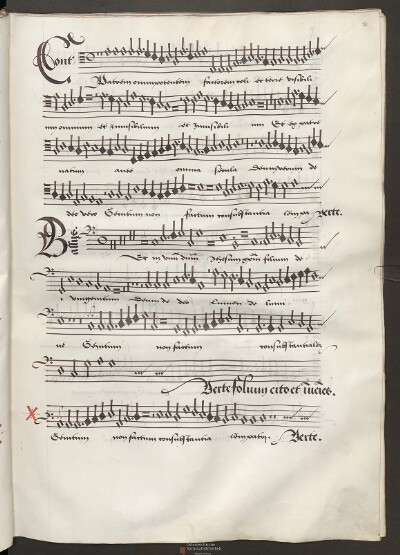 Cont
Patrem omnipotentem factorem celi et terre visibili
um omnium et invisibilium et invisibili um Et ex patre
natum ante omnia secula Deum verum de
deo vero Genitum non factum consubstantia Verte.
Et in unum dnm Jhesum filium de
unigenitum Deum de deo Lumen de lumi
ne Genitum non factum consubstantialem
Verte folium cito et invenies.
Genitum non factum consubstantia lem patri. Verte.